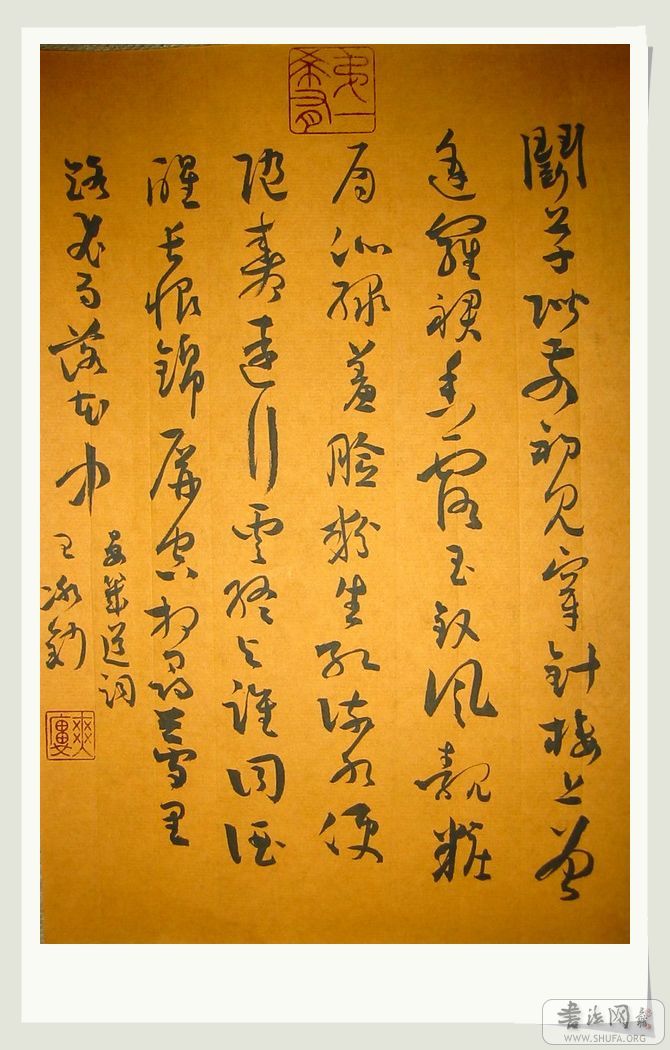 鬭草階前初見穿針樓上曾
逢羅裙香露玉釵風靚粧
眉沁綠羞臉粉生紅流水便
隨春遠行雲終與誰同酒
醒長恨錦屏空相尋夢里
路飛雨落花中
晏幾道詞
王冰
爽
書法网
WWW.SHUFA.ORG